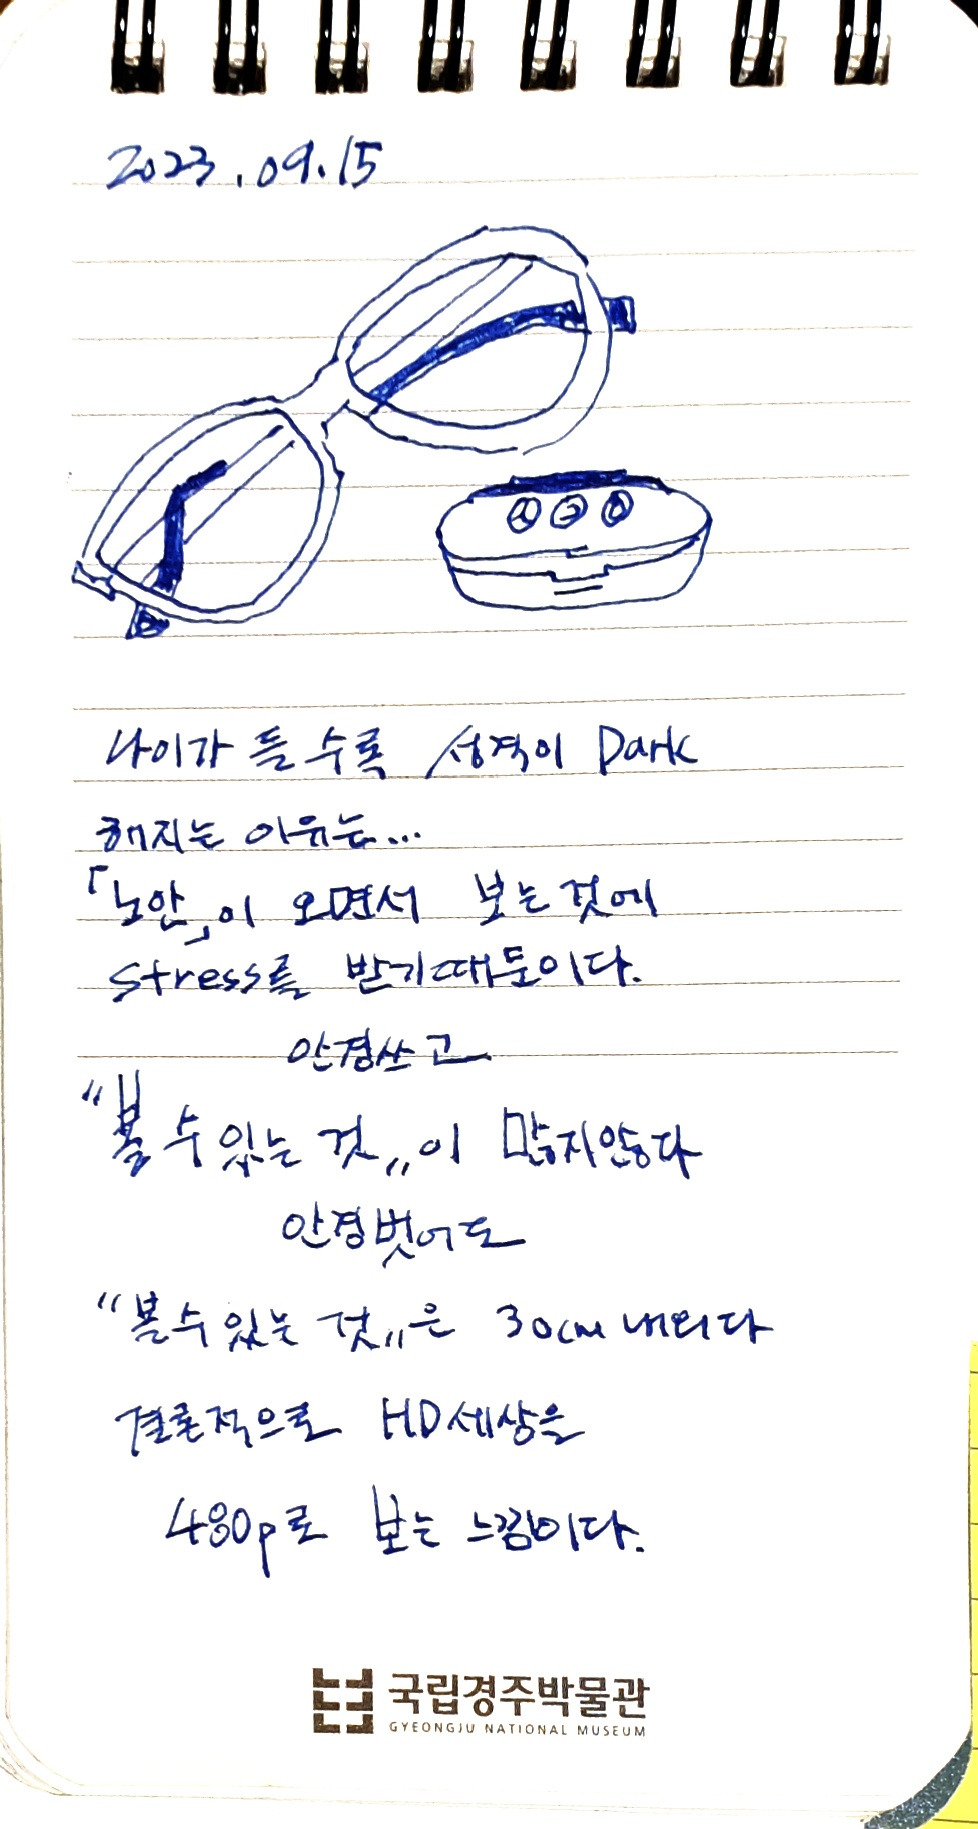 2023.09.15
나이가 들수록 성격이 Dark
해지는 이유는...
「노안」이 오면서 보는것에
stress를 받기때문이다.
안경쓰고
"볼 수 있는 것"이 많지않다
안경벗어도
"볼수있는 것"은 30cm 내외다
결론적으로 HD세상을
480p로 보는 느낌이다.
국립경주박물관
GYEONGJU NATIONAL MUSEUM